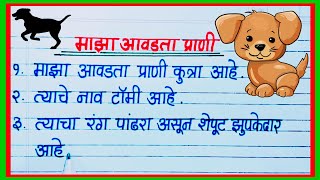 माझा आवडता प्राणी
१. माझा आवडता प्राणी कुत्रा आहे.
२. त्याचे नाव टॉमी आहे.
३. त्याचा रंग पांढरा असून शेपूट झुपकेदार
आहे.